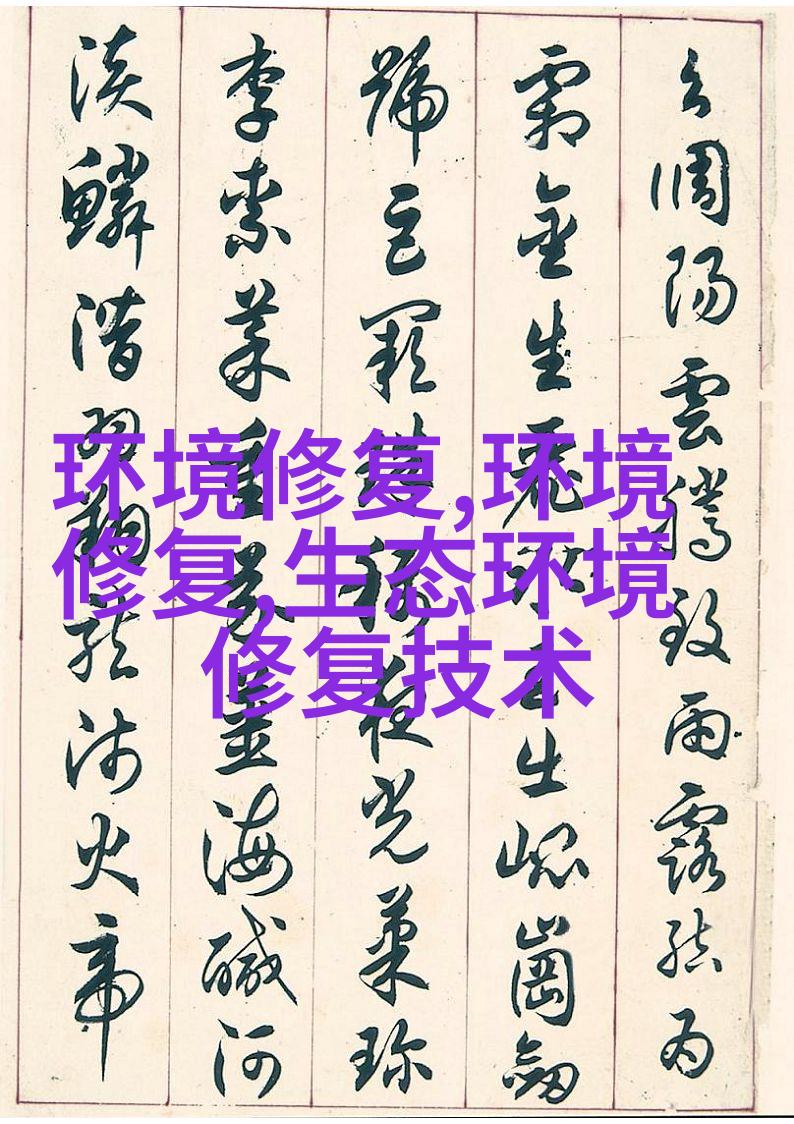 环境修复,环境
修复,生态环境
修复技术
呂調陽雲騰致雨露結為
霜金生麗水玉出崐崗劒
號巨闕珠稱夜光菓珍
李柰菜重芥薑海醎河
淡鱗潛羽翔龍師火帝